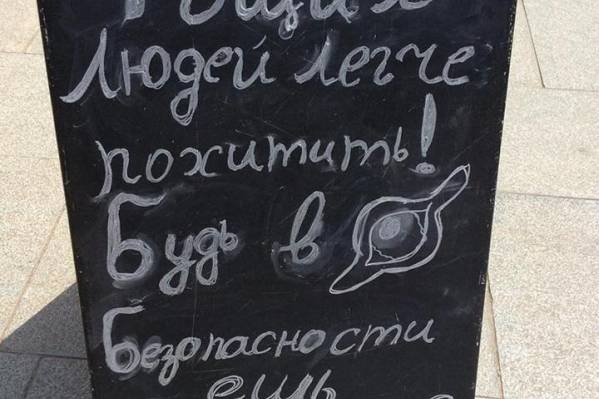 Тощих
людей легче
похитить!
Будь в
Безопасности
ешь